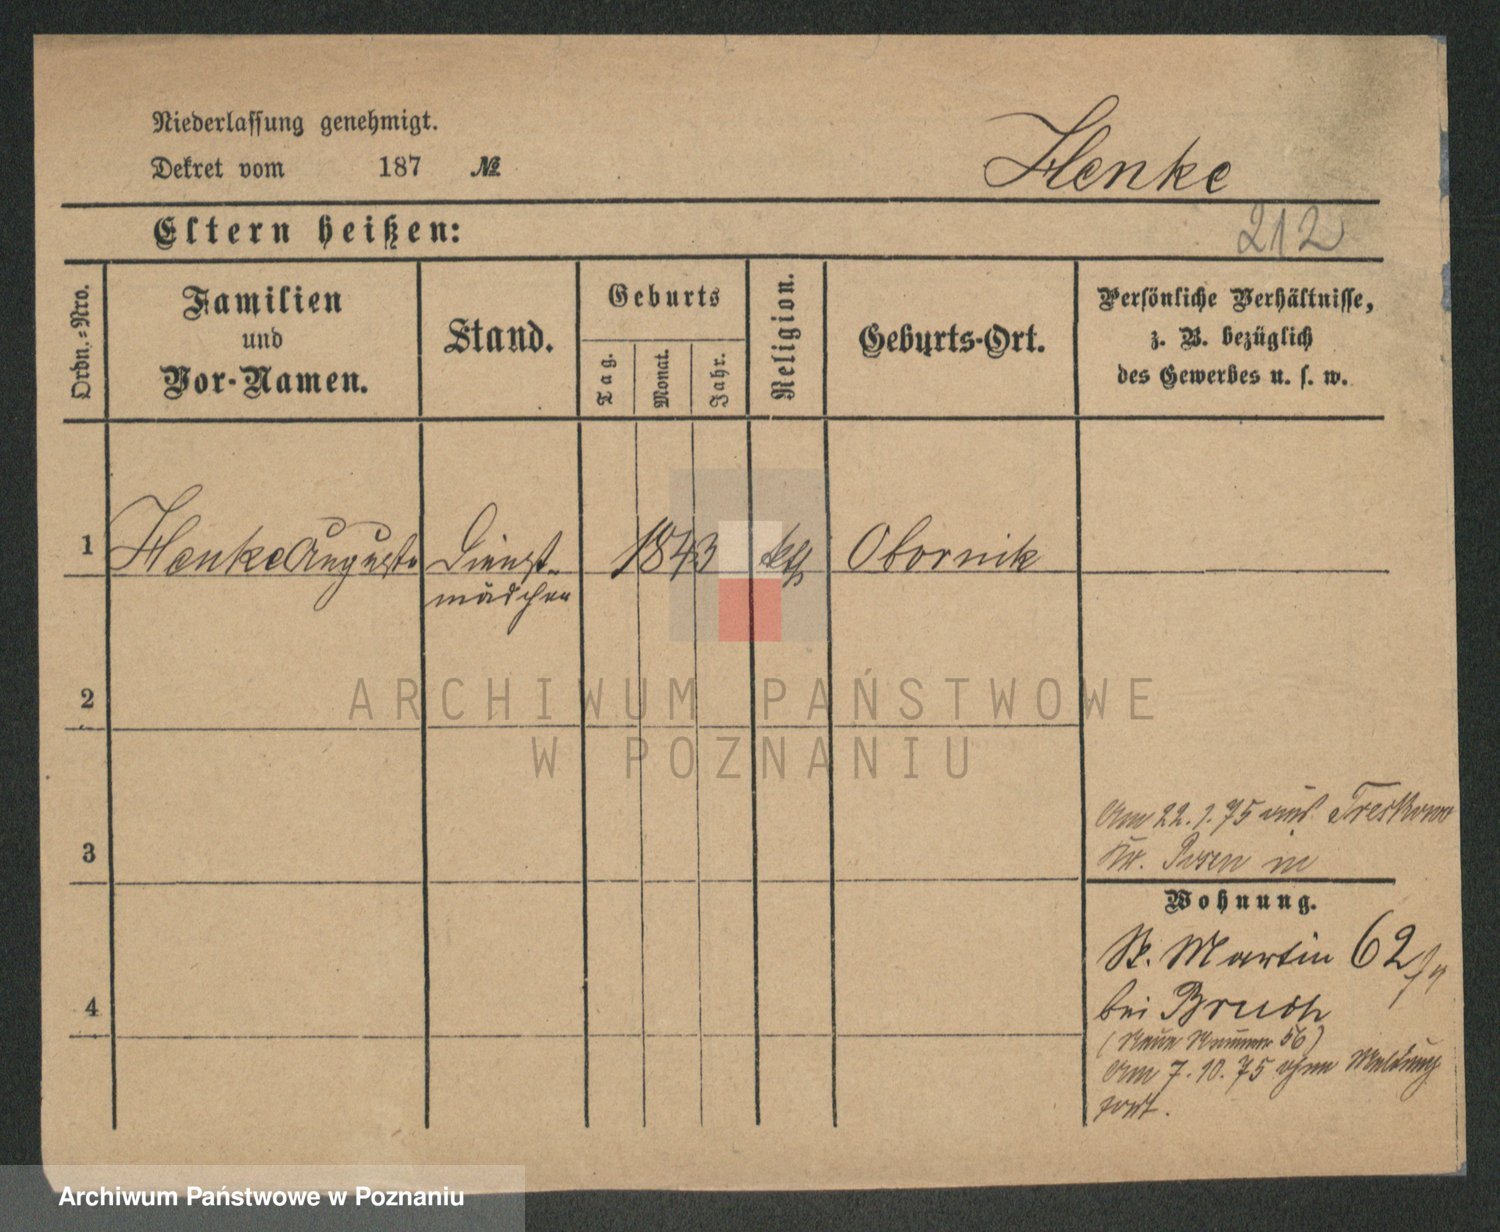 Niederlassung genehmigt.
Dekret vom 187 №
Henke
Eltern heißen:
212
Ordn.-Nro.
Familien
und
Vor-Namen.
Stand.
Geburts
Tag.
Monat.
Jahr.
Religion.
Geburts-Ort.
Persönliche Verhältnisse,
z. B. bezüglich
des Gewerbes u. s. w.
1 Henke Auguste Dienst- 1843 kth Obornik
mädchen
2
ARCHIWUM PAŃSTWOWE
W POZNANIU
Am 22. 1. 75 aus Treskowo
3
Kr. Posen in
Wohnung.
St. Martin 62
bei Brush
4
(Neue Nummer 56)
Am 7. 10. 75 ohne Meldung
fort.
Archiwum Państwowe w Poznaniu